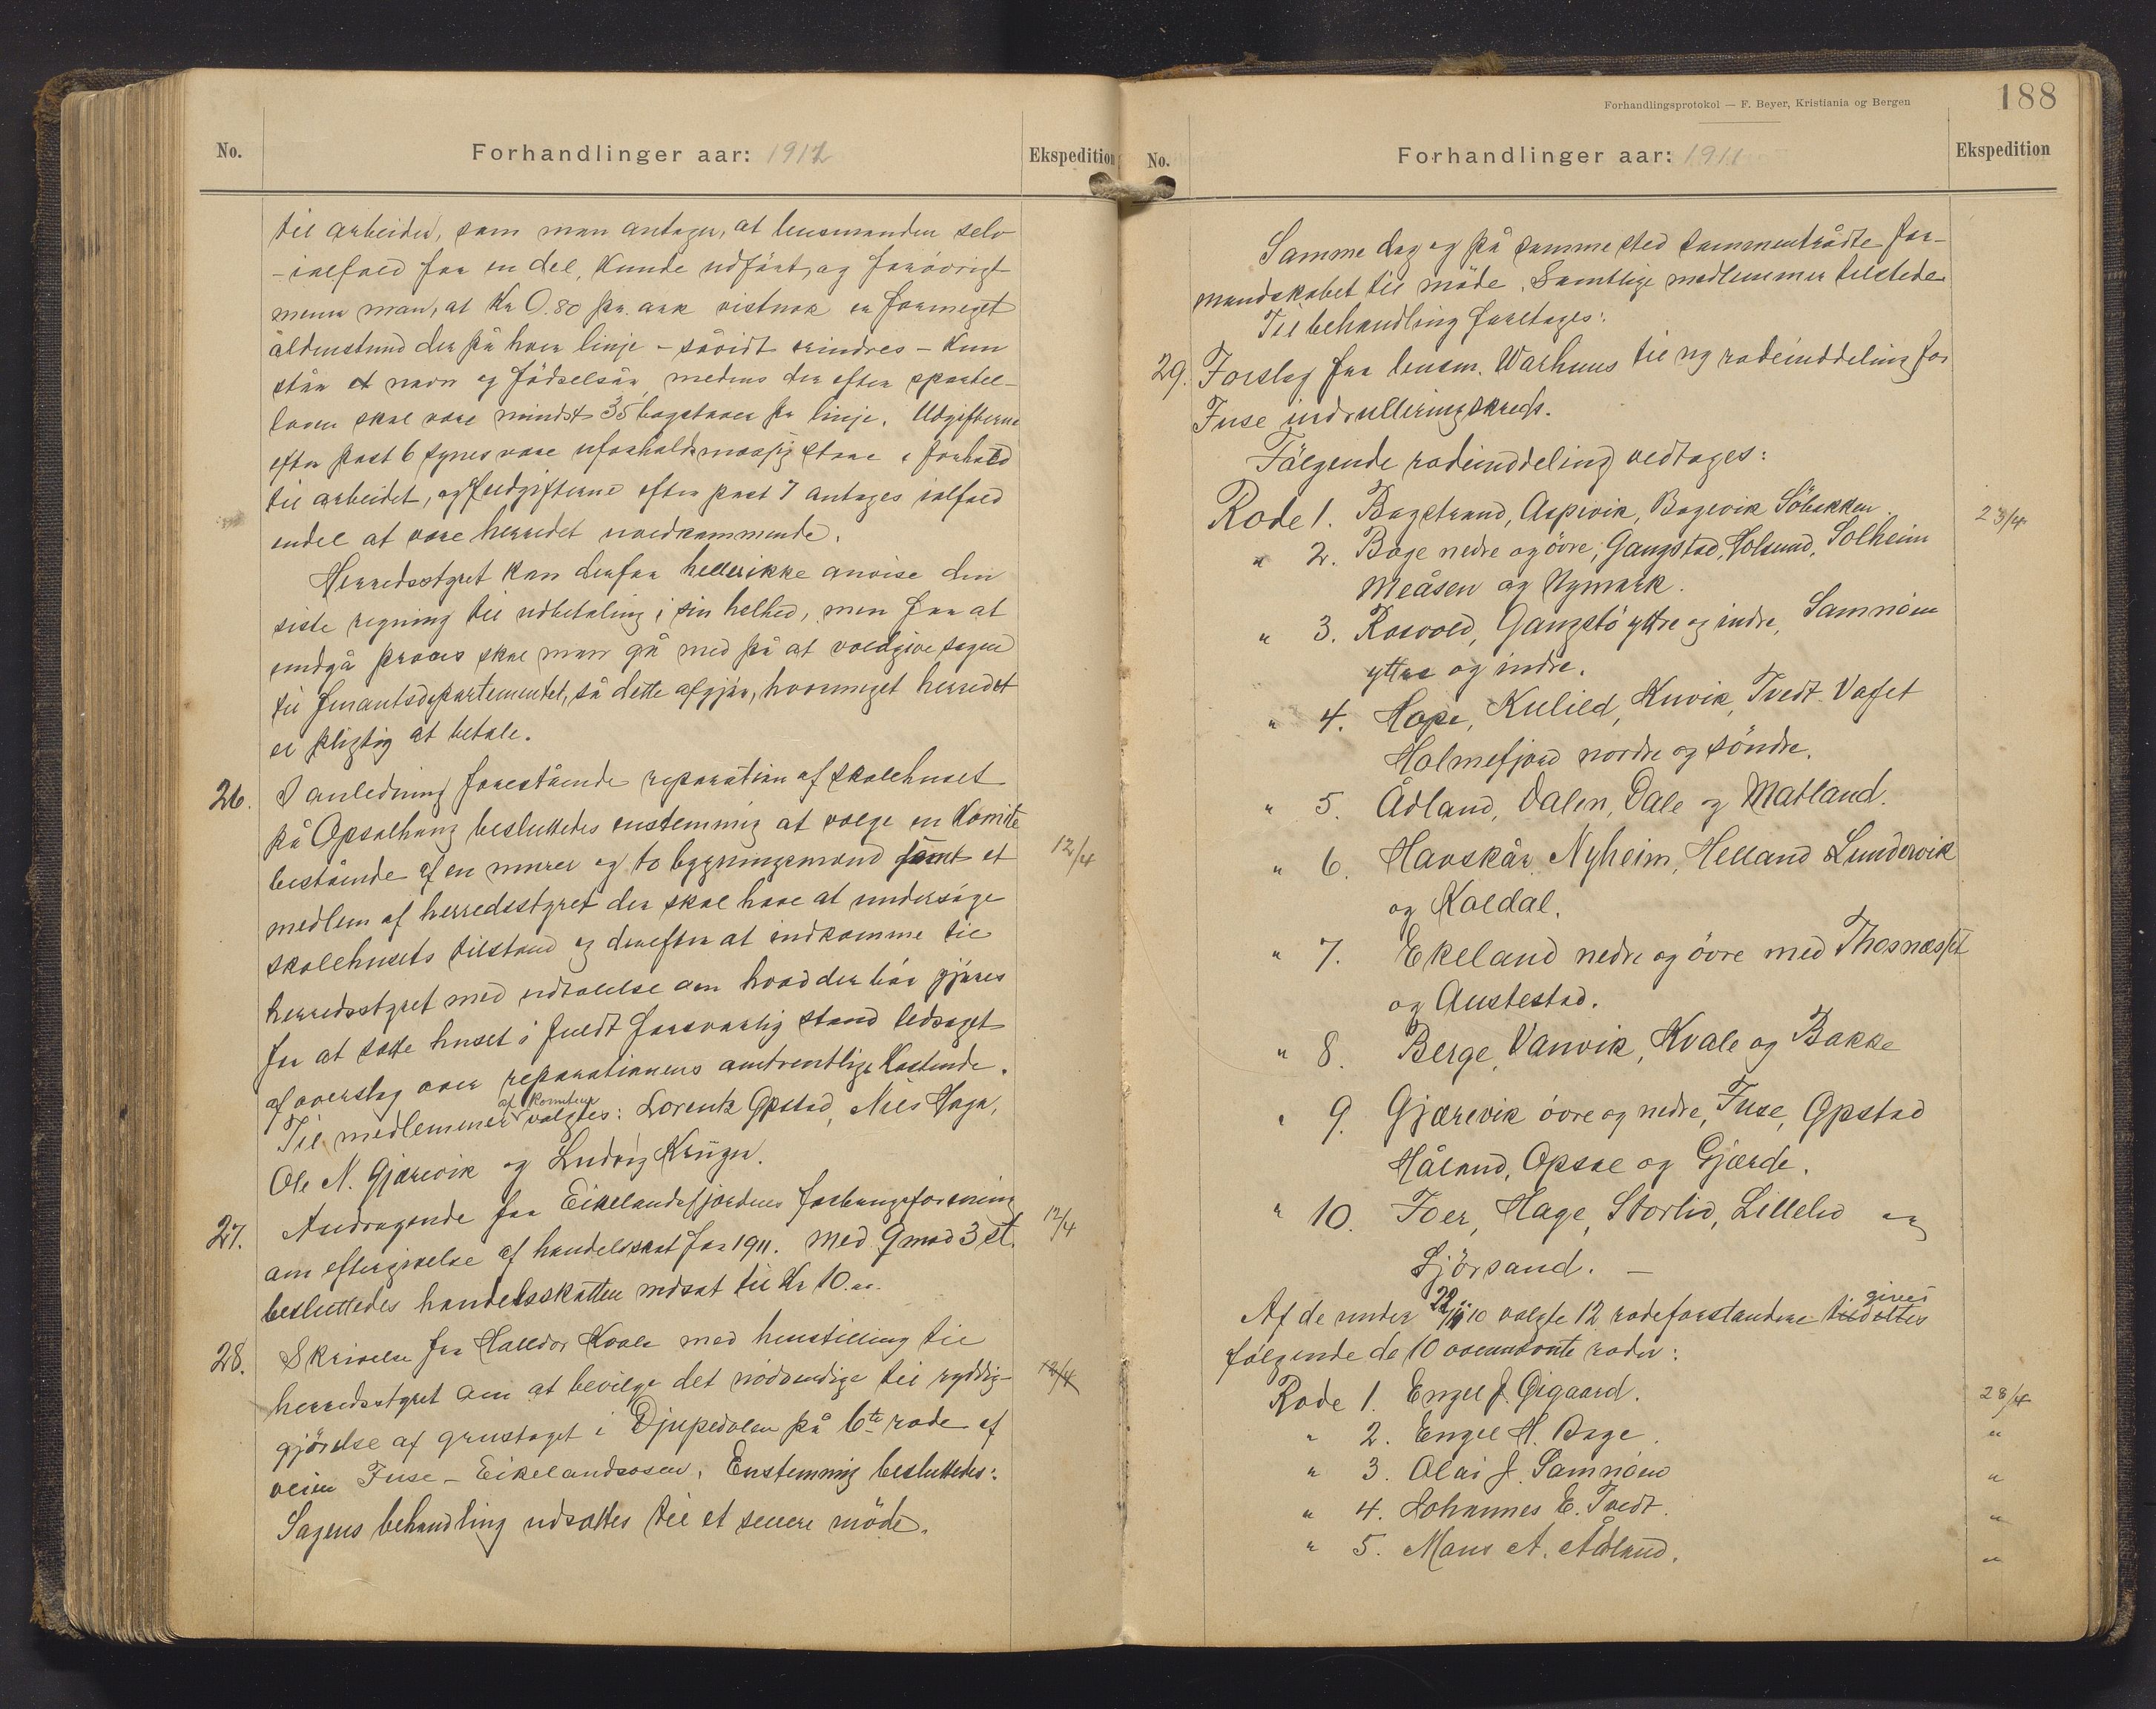 No.
Forhandlinger aar: 1912
Ekspedition
til arbeider, som man antager, at lensmanden selv
- ialfald for en del, kunde udført, og forøvrigt
mener man, at Kr 0.80 pr. ark vistnok er formeget
aldenstund der på hver linje - såvidt erindres - kun
står et navn og fødselsår, medens der efter sportel-
loven skal være mindst 35 bogstaver pr linje. Udgifterne
efter post 6 synes være uforholdsmæssig store i forhold
til arbeidet, og udgifterne efter post 7 antages ialfald
endel at være herredet uvedkommende.
Herredsstyret kan derfor heller ikke anvise den
siste regning til udbetaling i sin helhed, men for at
undgå proces skal man gå med på at voldgive sagen
til finantsdepartementet, så dette afgjør, hvormeget herredet
er pligtig at betale.
26. I anledning forestående reparation af skolehuset
på Opsalhaug besluttedes enstemmig at vælge en komite
bestående af en murer og to bygningsmænd samt et
12/4
medlem af herredsstyret der skal have at undersøge
skolehusets tilstand og derefter at indkomme til
herredsstyret med udtalelse om hvad der bør gjøres
for at sætte huset i fuldt forsvarlig stand ledsaget
af overslag over reparationens omtrentlige kostende.
af komiteen
Til medlemmer valgtes: Lorentz Gpstad, Nils Haga,
Ole N. Gjærevik og Ludvig Krüger.
27. Andragende fra Eikelandsfjordens forbrugsforening
12/4
om eftergivelse af handelsskat for 1911. Med 9 mod 3 st.
besluttedes handelsskatten nedsat til Kr 10.00.
28. Skrivelse fra Halldor Kvale med henstilling til
herredsstyret om at bevilge det nødvendige til ryddig-
12/4
gjørelse af grustaget i Djupedalen på 6te rode af
veien Fuse - Eikelandsosen. Enstemmig besluttedes:
Sagens behandling udsættes til et senere møde.
Forhandlingsprotokol — F. Beyer, Kristiania og Bergen
188
No.
Forhandlinger aar: 1911
Ekspedition
Samme dag og på samme sted sammentrådte for-
mandskabet til møde. Samtlige medlemmer tilstede
Til behandling foretages:
29. Forslag fra lensm. Warhuus til ny rodeinddeling for
Fuse indrulleringskreds.
Følgende rodeinddeling vedtages:
Rode 1. Bogstrand, Aspevik, Bogevik Söbakken.
23/4
" 2. Boge nedre og övre, Gangstad, Holsund, Solheim
Meåsen og Nymark.
" 3. Rosvold, Gangstö yttre og indre, Samnöen
yttre og indre.
" 4. Hope, Kulild, Kuvik, Tvedt Vaset
Holmefjord nordre og söndre.
" 5. Ådland, Dalen, Dale og Matland.
" 6. Havskår, Nyheim, Helland Lundervik
og Koldal.
" 7. Ekeland nedre og övre med Thosnæsset
og Austestad.
" 8. Berge, Vanvik, Kvale og Bakke
" 9. Gjærevik övre og nedre, Fuse, Gpstad
Håland, Opsal og Gjærde.
" 10. Ioer, Hage, Storlid, Lillelid og
Sjörsand. —
gives
Af de under 22/11 10 valgte 12 rodeforstandere tildeltes
følgende de 10 ovennævnte roder:
Rode 1. Engel J. Øigaard.
28/4
" 2. Engel H. Boge.
"
" 3. Olai J. Samnöen
"
" 4. Johannes E. Tvedt.
"
" 5. Mons A. Ådland.
"